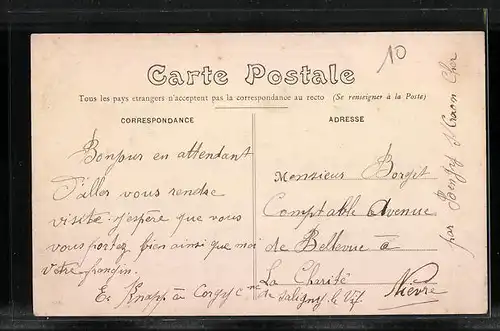 10
Carte Postale
Tous les pays etrangers n'acceptent pas la correspondance au recto (Se renseigner à la Poste)
CORRESPONDANCE
Bonjour en attendant
d'aller vous rendre
visite j'espère que vous
vous portez bien ainsi que moi
votre
E. Knapp à Corgy cne de Saligny le Vif
ADRESSE
Monsieur Borgit
Comptable Avenue
de Bellevue à
La Charité
Nièvre
par Cher